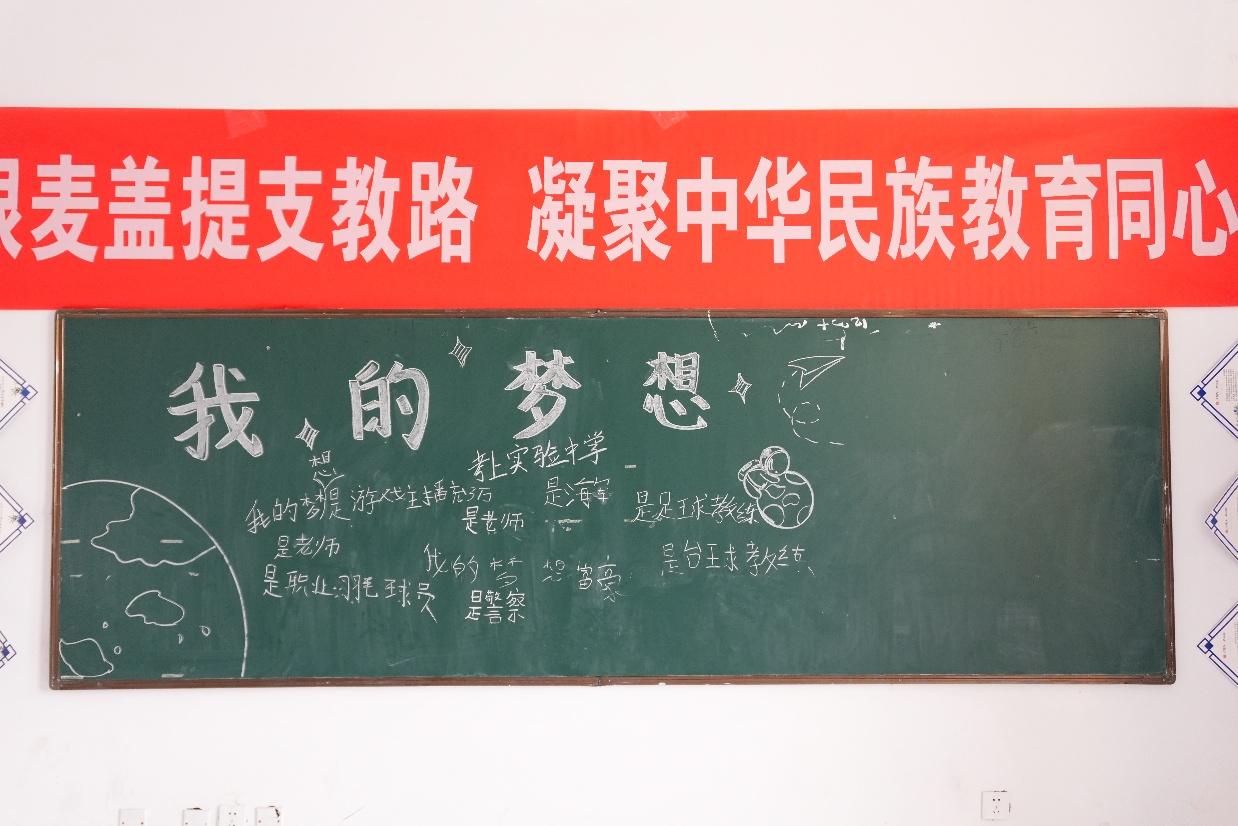 麦盖提支教路 凝聚中华民族教育同心
我的梦想
考上实验中学
想
我的梦是游戏主播
是老师
是海军
是足球教练
是老师
我的梦想富豪
是台球教练
是职业羽毛球员
是警察